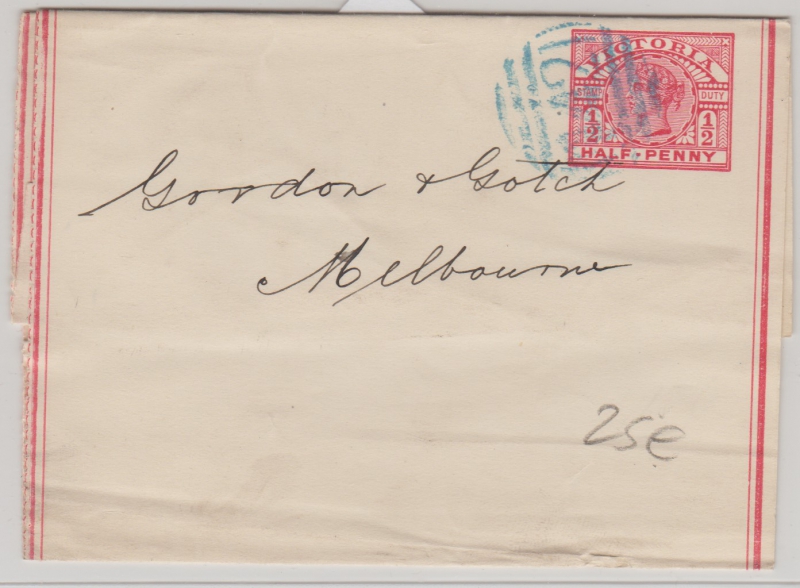 VICTORIA
STAMP DUTY
1/2 1/2
HALF-PENNY
Gordon & Gotch
Melbourne
25e